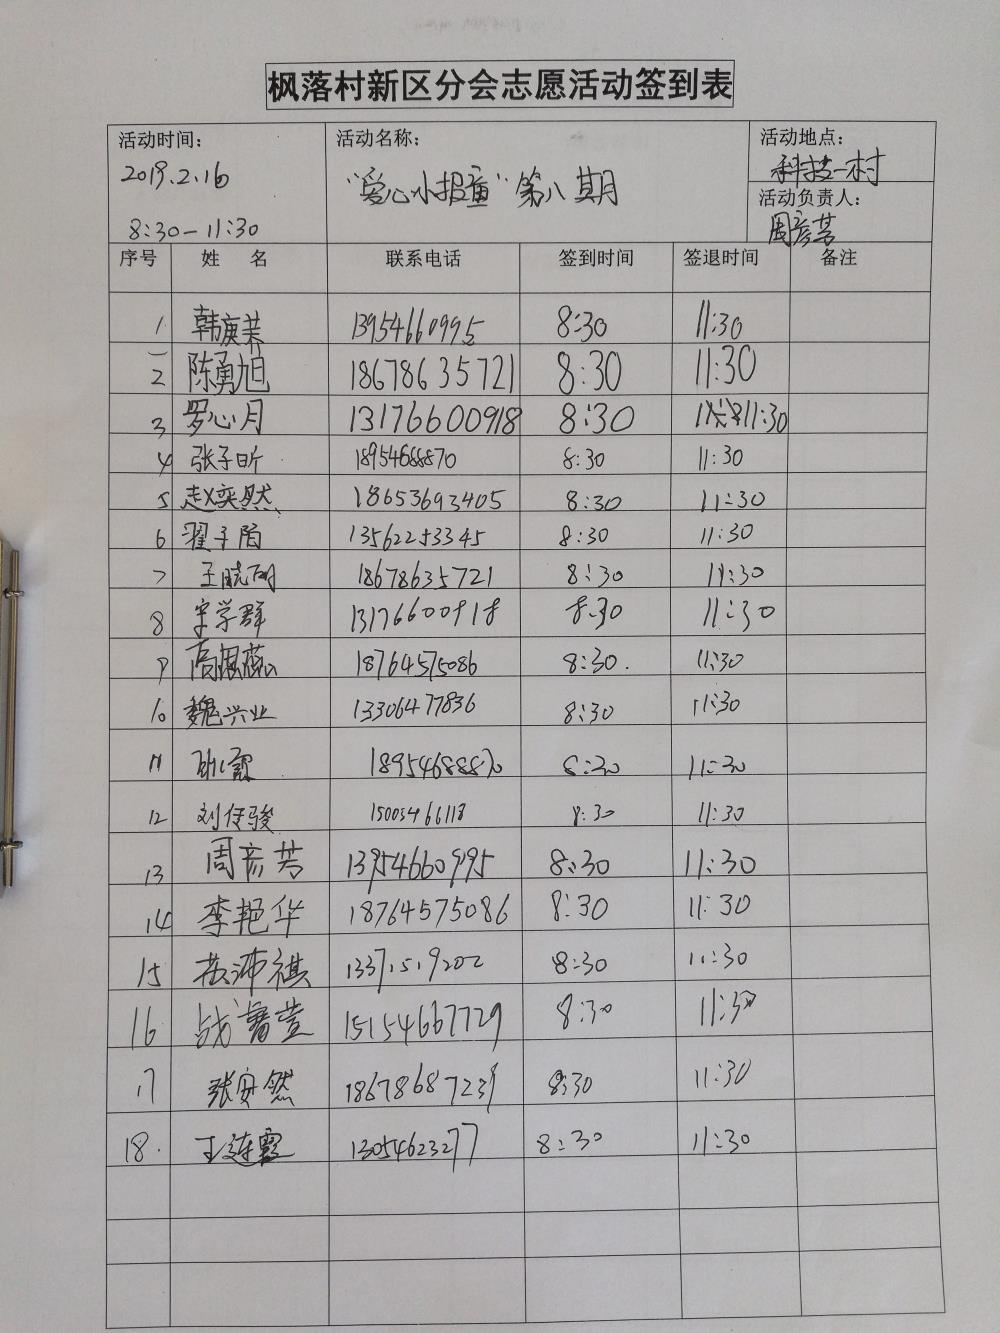 枫落村新区分会志愿活动签到表
活动时间: 活动名称: 活动地点:
2019.2.16 "爱心小报童"第八期 科技一村
8:30-11:30 活动负责人:
周彦芳
序号 姓 名 联系电话 签到时间 签退时间 备注
1 韩庚 13954660995 8:30 11:30
2 陈勇旭 18678635721 8:30 11:30
3 罗心月 13176600918 8:30 11:30
4 张子昕 18954688870 8:30 11:30
5 赵奕然 18653693405 8:30 11:30
6 翟子陌 13562253345 8:30 11:30
7 王晓丽 18678635721 8:30 11:30
8 宋学群 13176600918 8:30 11:30
9 高 18764575086 8:30. 11:30
10 魏兴业 13306477836 8:30 11:30
11 18954688870 8:30 11:30
12 刘任骏 15005466118 8:30 11:30
13 周彦芳 13954660995 8:30 11:30
14 李艳华 18764575086 8:30 11:30
15 沛祺 13371519202 8:30 11:30
16 战 萱 15154667729 8:30 11:30
17 张安然 18678687239 8:30 11:30
18. 王连霞 13054623277 8:30 11:30